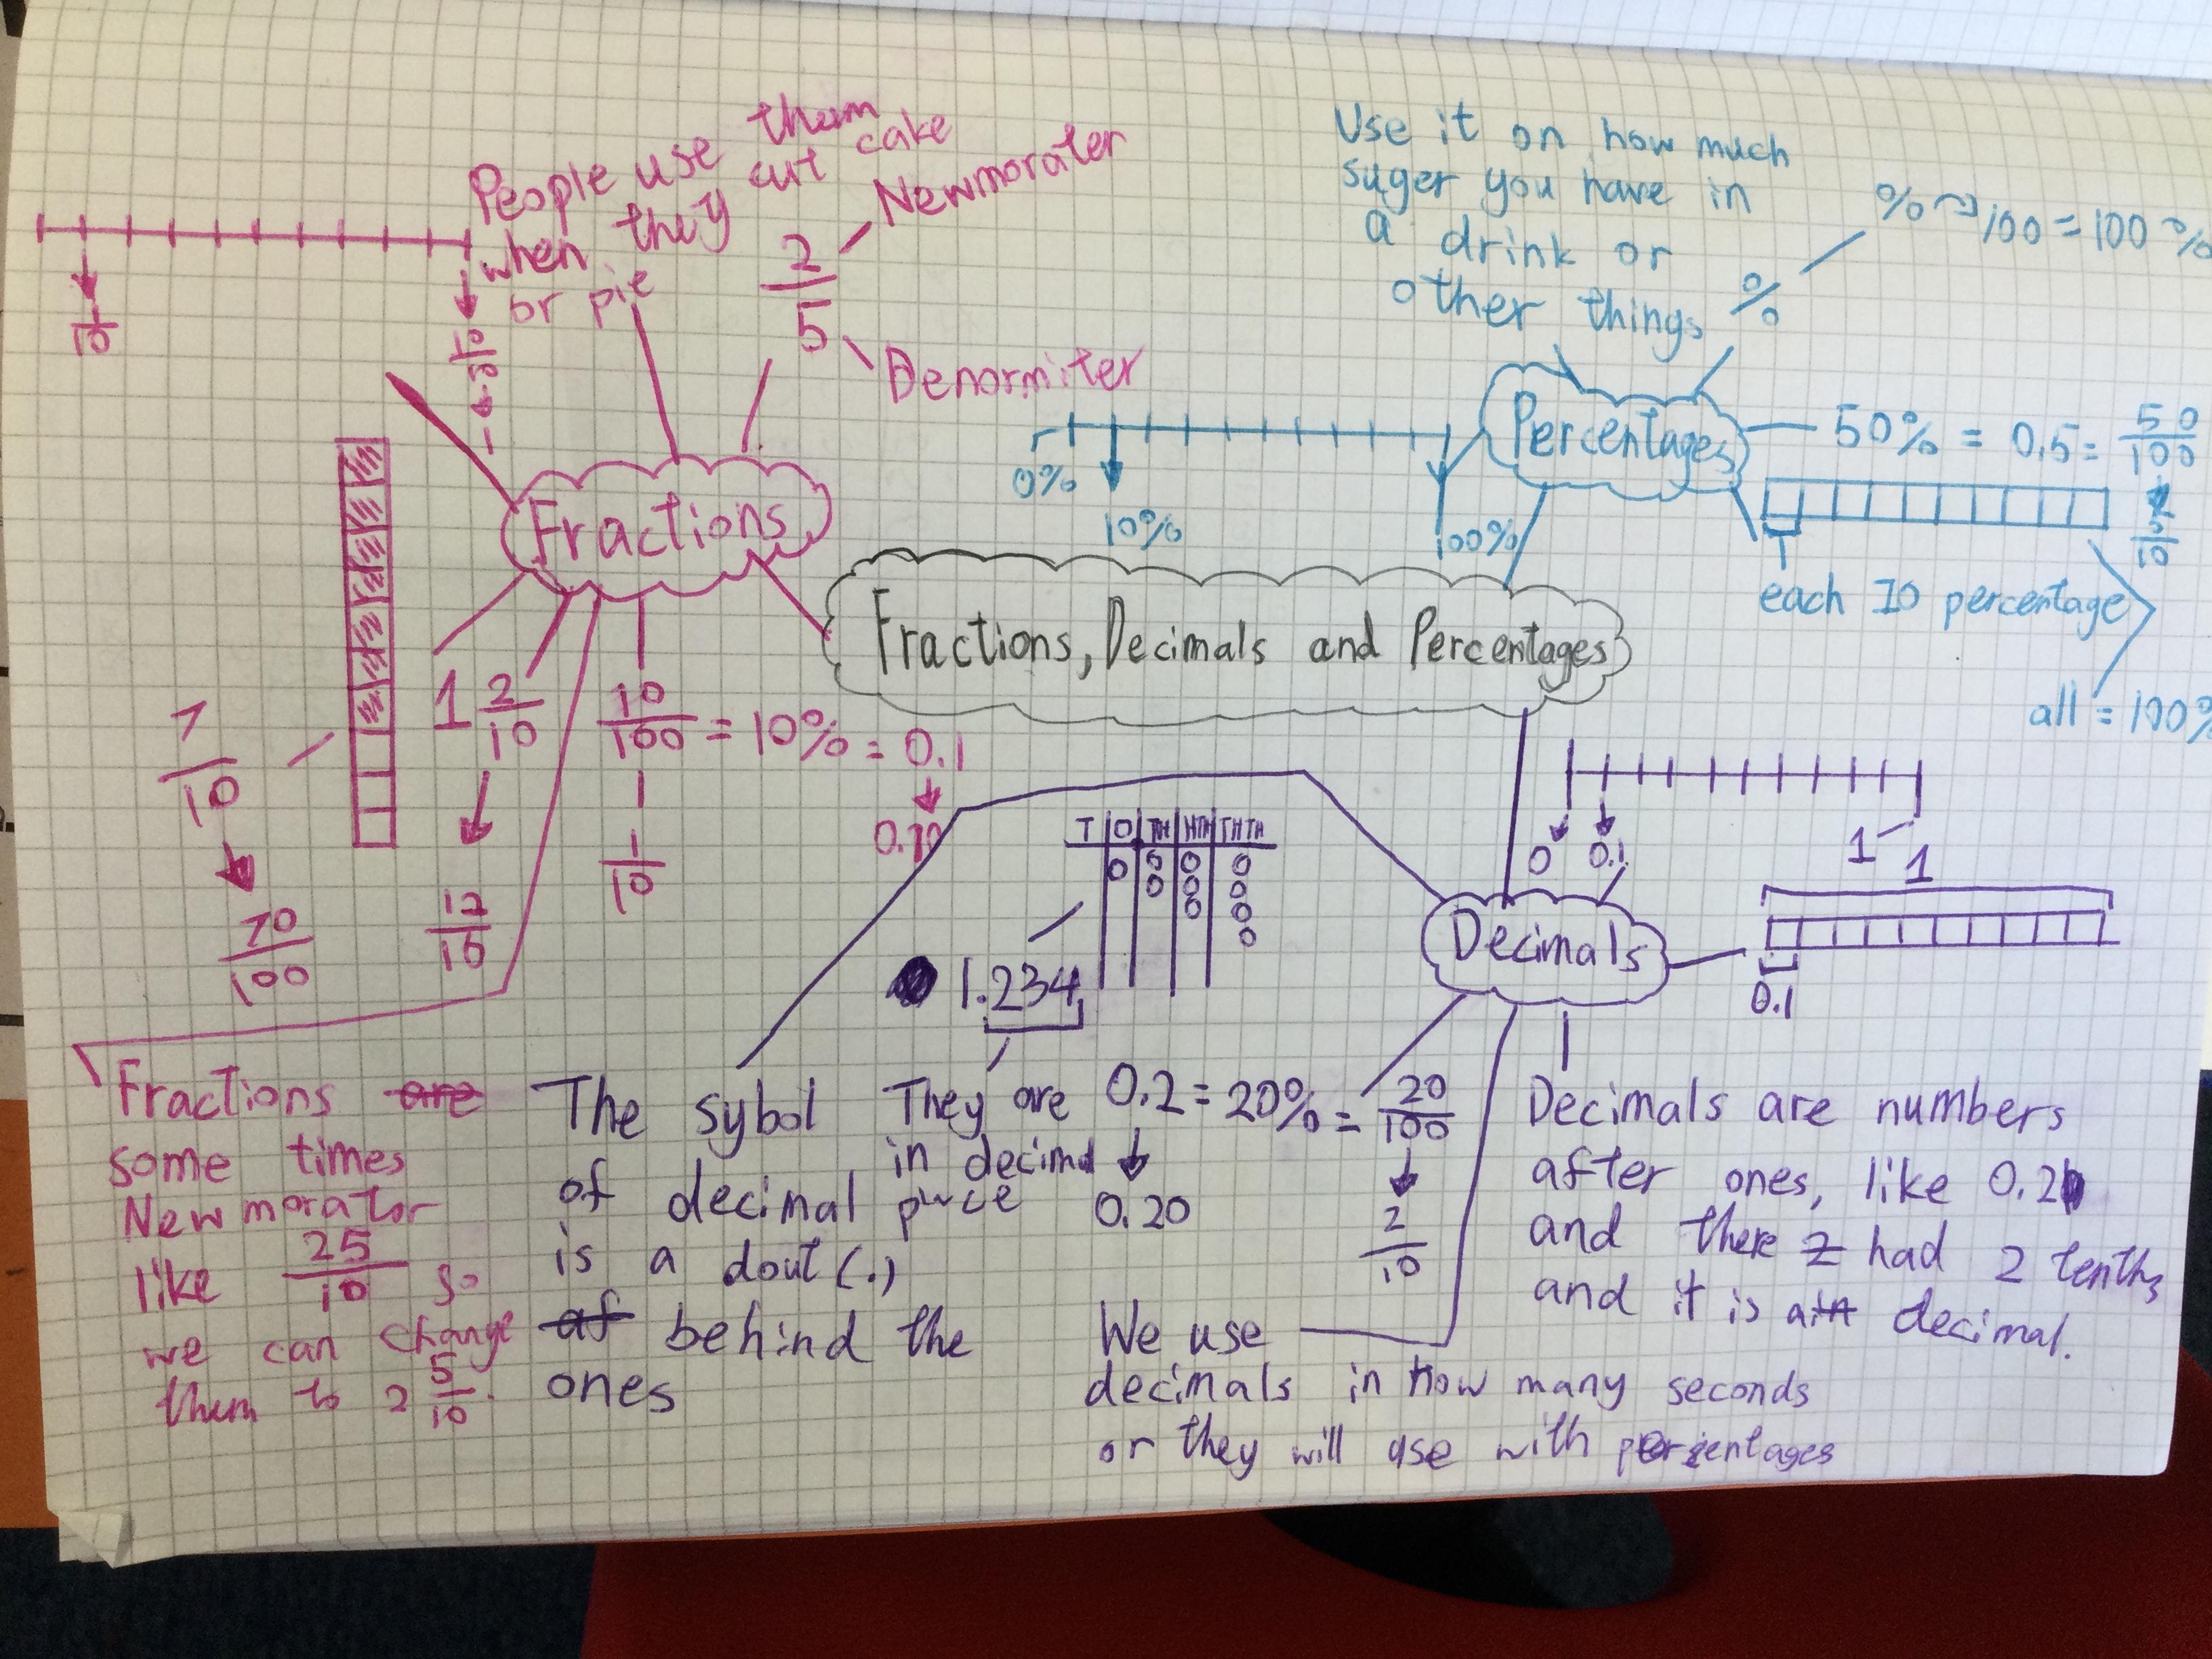 People use them
when they cut cake
or pie
1/10
10/10
2/5
Newmorater
Denormiter
Fractions
7/10
70/100
1 2/10
12/10
10/100 = 10% = 0.1
1/10
0.10
Fractions are
some times
Newmorator
like 25/10 so
we can change
them to 2 5/10.
Fractions, Decimals and Percentages
Use it on how much
suger you have in
a drink or
other things
%
% 100 = 100%
Percentages
0%
10%
100%
50% = 0.5 = 50/100
5/10
each 10 percentage
all = 100%
Decimals
0
0.1
1
1
0.1
T O TH HTH THTH
1.234
They are
in decimal
place
The sybol
of decimal
is a dout (.)
af behind the
ones
0.2 = 20% = 20/100
0.20
2/10
We use
decimals in how many seconds
or they will use with percentages
Decimals are numbers
after ones, like 0.2
and there had 2 tenths
and it is a decimal.